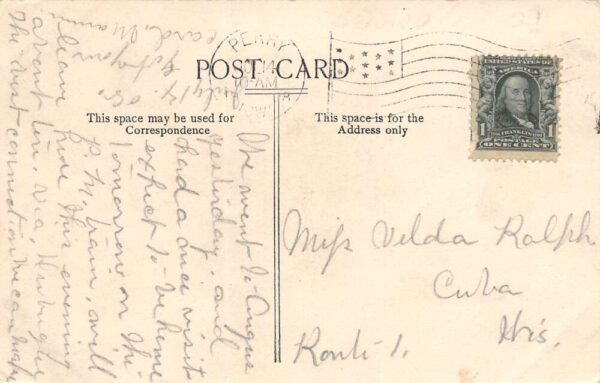 POST CARD
PERRY
14
AM
This space may be used for
Correspondence
This space is for the
Address only
UNITED STATES OF
AMERICA
FRANKLIN
1
POSTAGE
ONE CENT
July 14
your
card.
We went to Angus
yesterday, and
had a nice visit
expect to be home
tomorrow on the
P.M. train, will
this evening
ten. via.
The best connection we can make
Miss Velda Ralph
Cuba
Wis.
Route 1.